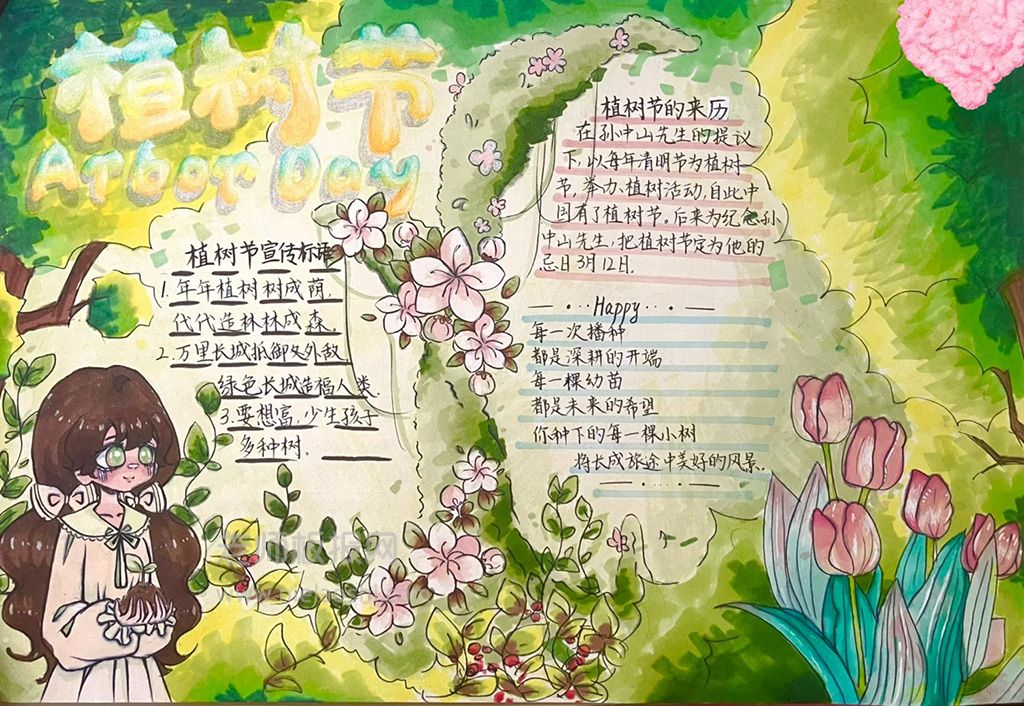 植树节
Arbor Day
植树节宣传标语
1.年年植树树成荫.
代代造林林成森.
2.万里长城抵御外敌
绿色长城造福人类.
3.要想富,少生孩子
多种树.
植树节的来历
在孙中山先生的提议
下,以每年清明节为植树
节,举办植树活动,自此中
国有了植树节。后来为纪念孙
中山先生,把植树节定为他的
忌日3月12日.
Happy
每一次播种
都是深耕的开端
每一棵幼苗
都是未来的希望
你种下的每一棵小树
将长成旅途中美好的风景.